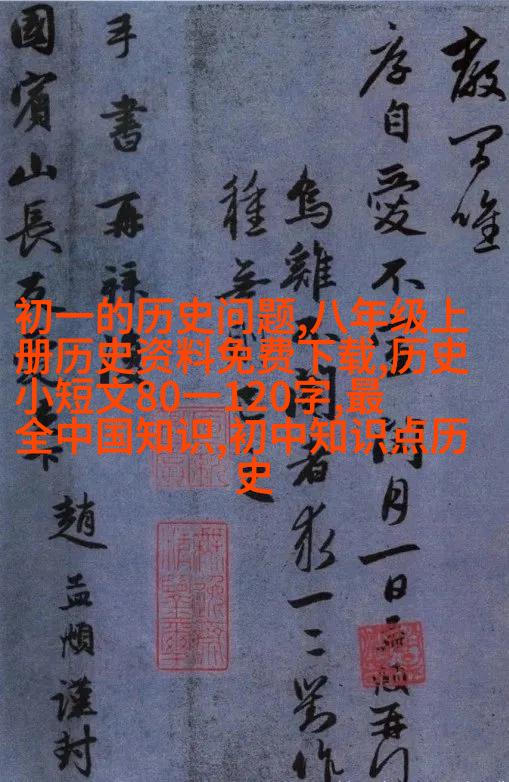 唯
厚自愛不
月一日孟頫再拜
烏雞
者求一二對作
種
手書再拜
國賓山長
趙孟頫謹封
初一的历史问题,八年级上
册历史资料免费下载,历史
小短文80一120字,最
全中国知识,初中知识点历
史